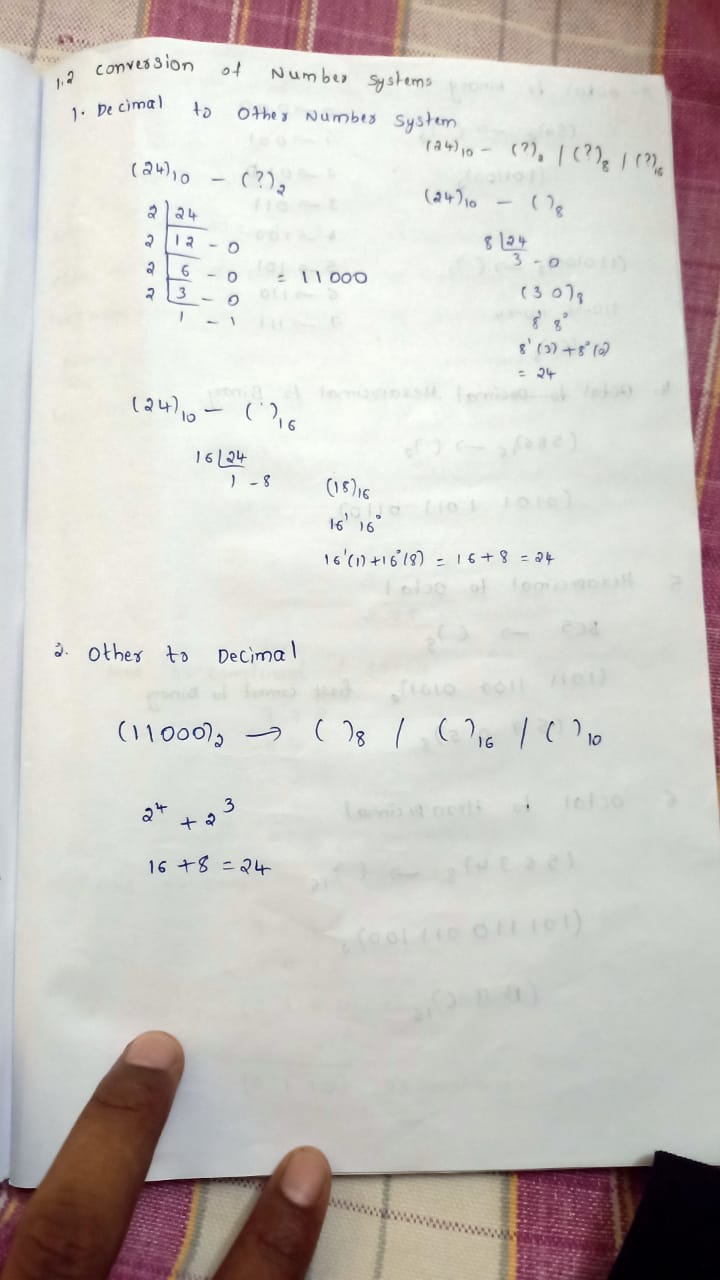 1.2 Conversion of Number Systems
1. Decimal to Other Number System
(24)10 - (?)2 / (?)8 / (?)16
(24)10 - (?)2
2 | 24
2 | 12 - 0
2 | 6 - 0 = 11000
2 | 3 - 0
1 - 1
(24)10 - ( )8
8 | 24
3 - 0
(30)8
8¹ 8⁰
8¹(3) + 8⁰(0)
= 24
(24)10 - ( )16
16 | 24
1 - 8
(18)16
16¹ 16⁰
16¹(1) + 16⁰(8) = 16 + 8 = 24
2. Other to Decimal
(11000)2 → ( )8 / ( )16 / ( )10
2⁴ + 2³
16 + 8 = 24